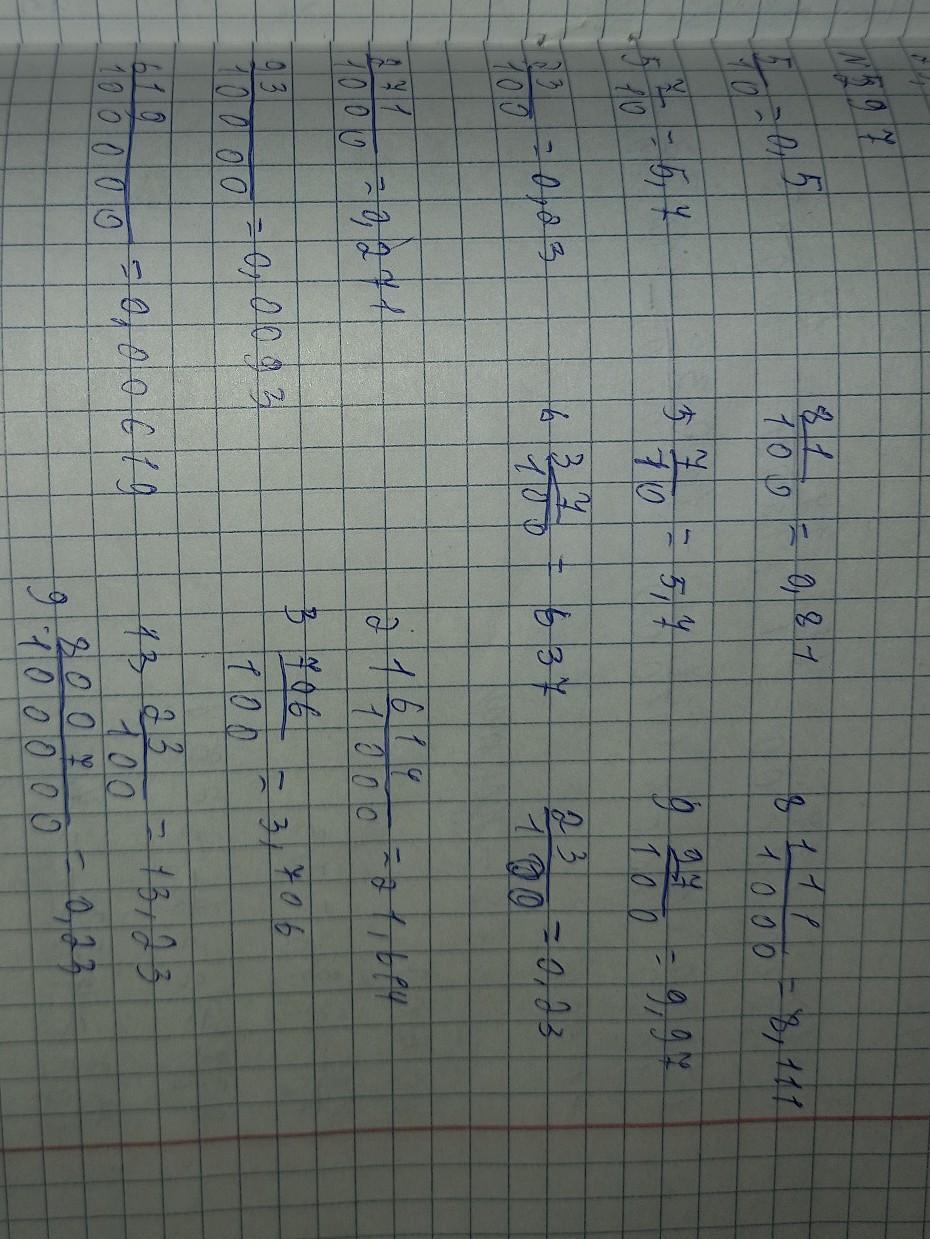 N 597
5/10 = 0,5 81/100 = 0,81 8 111/1000 = 8,111
5 7/10 = 5,7 5 7/10 = 5,7 9 97/100 = 9,97
23/100 = 0,23 6 37/100 = 6 37 23/100 = 0,23
271/1000 = 0,271 21 614/1000 = 21,614
93/10000 = 0,0093 3 706/100 = 3,706
619/100000 = 0,00619 13 23/100 = 13,23
9 8007/100000 = 0,23